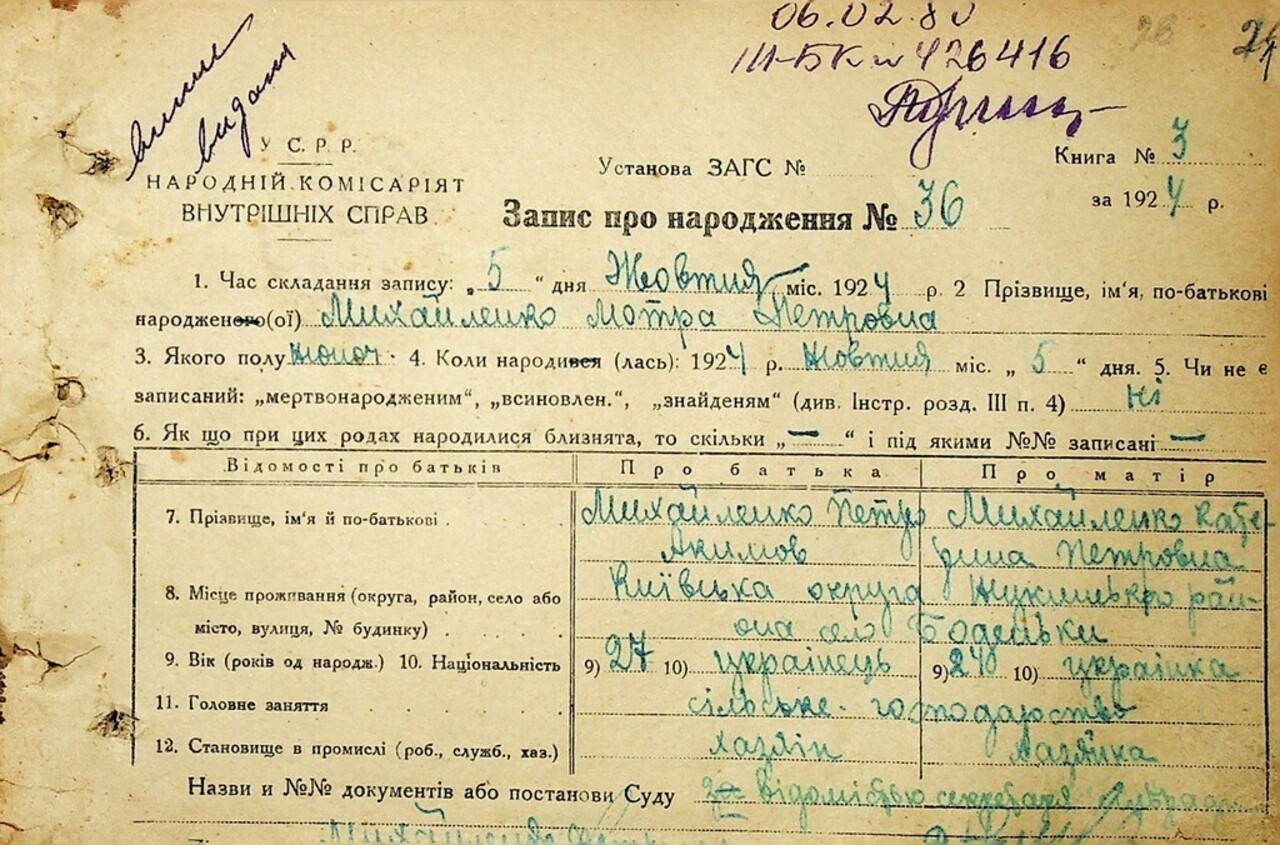 06.02.80
26
24
III-БК № 426416
виписе
видани
У С. Р. Р.
НАРОДНІЙ КОМІСАРІЯТ
ВНУТРІШНІХ СПРАВ
Установа ЗАГС №
Книга № 3
за 1924 р.
Запис про народження № 36
1. Час складання запису: „ 5 “ дня Жовтня міс. 1924 р. 2 Прізвище, ім'я, по-батькові
народженого(ої) Михайленко Мотра Петровна
3. Якого полу жіноч. 4. Коли народився (лась): 1924 р. жовтня міс. „ 5 “ дня. 5. Чи не є
записаний: „мертвонародженим“, „всиновлен.“, „знайденям“ (див. Інстр. розд. III п. 4) Ні
6. Як що при цих родах народилися близнята, то скільки „ — “ і під якими №№ записані —
Відомості про батьків Про батька Про матір
7. Прізвище, ім'я й по-батькові . Михайленко Петро Михайленко Кате-
Акимов рина Петровна
8. Місце проживання (округа, район, село або Київська округа Жукинського рай-
місто, вулиця, № будинку) . . . . . она село Боденьки
9. Вік (років од народж.) 10. Національність 9) 27 10) українець 9) 24 10) українка
11. Головне заняття . . . . . сільське господарство
12. Становище в промислі (роб., служб., хаз.) хазяїн хазяйка
Назви и №№ документів або постанови Суду відомістью секретаря
Михайленко